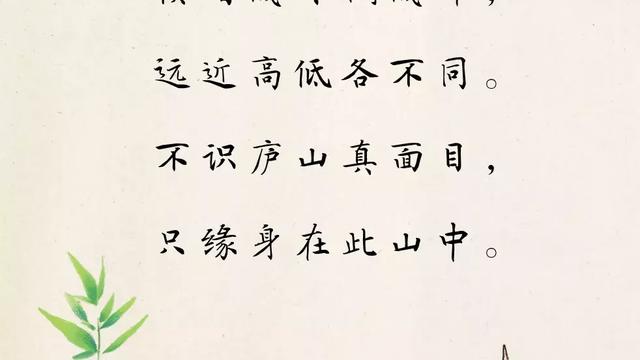 远近高低各不同。
不识庐山真面目，
只缘身在此山中。